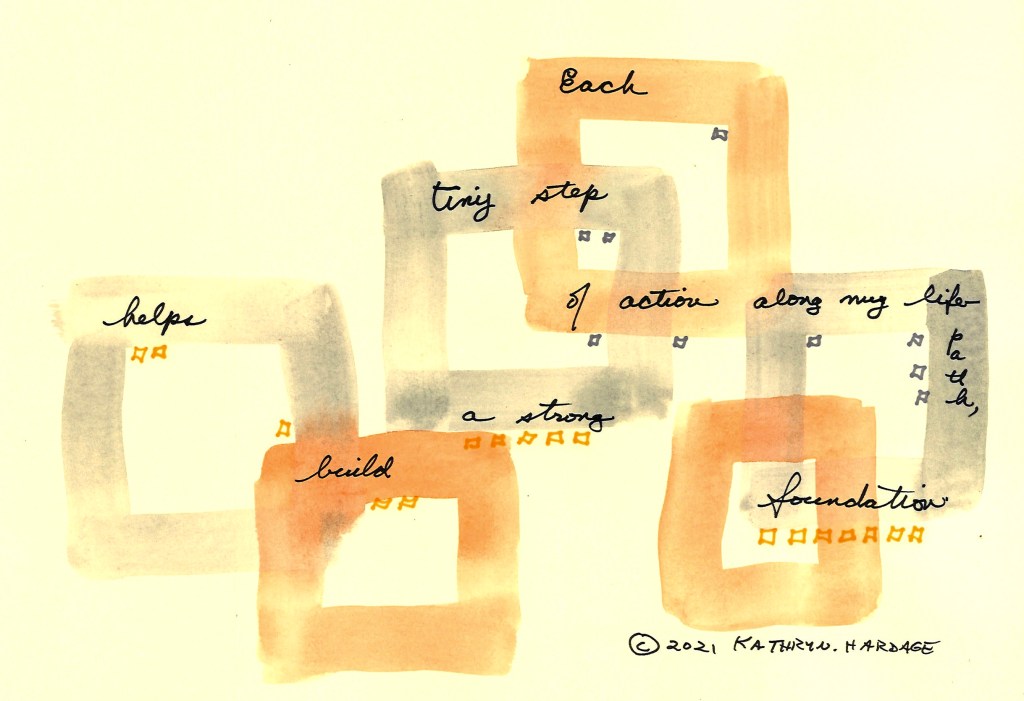 Each
tiny step
of action along my life
path,
helps
build
a strong
foundation
© 2021 KATHRYN. HARDAGE